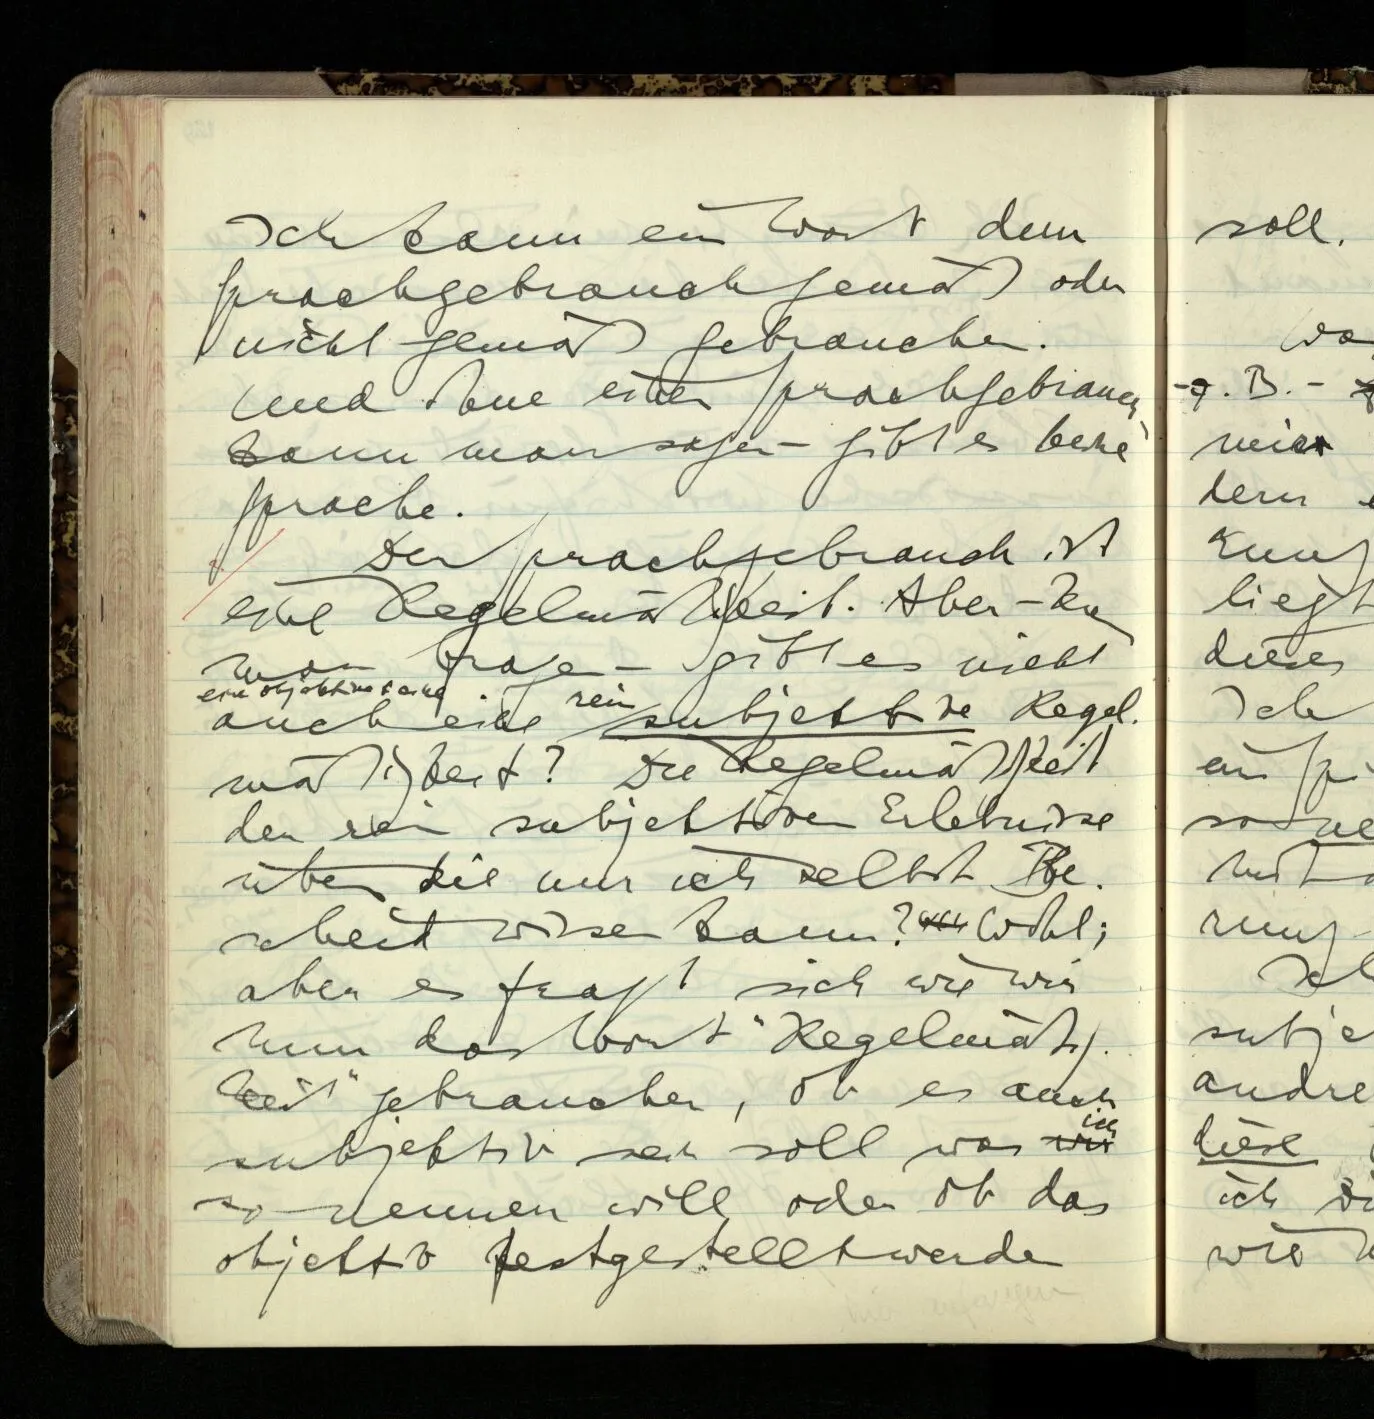 Ich kann ein Wort dem
Sprachgebrauch gemäß oder
nicht gemäß gebrauchen.
Und ohne einen Sprachgebrauch,
kann man sagen – gibt es keine
Sprache.
Der Sprachgebrauch ist
eine Regelmäßigkeit. Aber –
man fragen – gibt es nicht
eine objektive & eine
auch eine rein subjektive Regel-
mäßigkeit? Die Regelmäßigkeit
der rein subjektiven Erlebnisse
über die nur ich selbst Be-
scheid wissen kann? Wohl;
aber es fragt sich wie wir
nun das Wort "Regelmäßig-
keit" gebrauchen, ob es auch
ich
subjektiv sein soll was wir
so nennen will, oder ob das
objektiv festgestellt werden
soll.
z.B. –
liegt
dieses
Ich
ein
so
mit
andre
diese
ich
wie